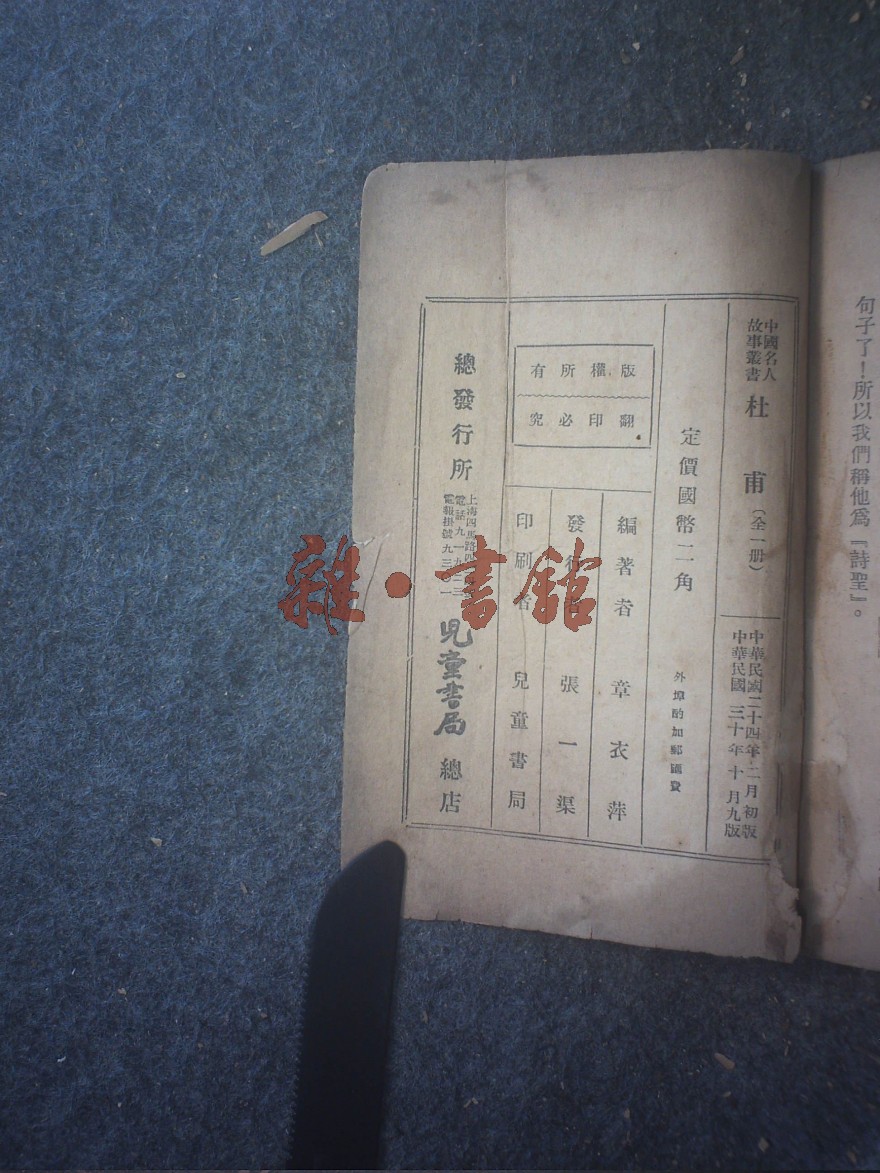 句子了！所以我們稱他爲『詩聖』。
中國名人
故事叢書
杜甫（全一册）
中華民國二十四年二月初版
中華民國三十年十月九版
定價國幣二角
外埠酌加郵匯費
版權所有
翻印必究
編著者 章衣萍
發行者 張一渠
印刷者 兒童書局
總發行所
上海四馬路四
電話九一九二三
電報掛號九三
兒童書局
總店
雜·書館